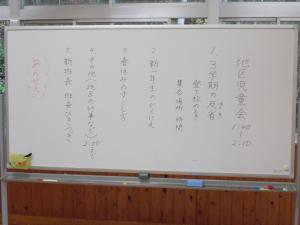 地区児童会 1:40〜2:10
1. 3学期の反省
登下校のしかた
集合場所・時間
2. 新一年生のかくにん
3. 春休みのすごし方
4. その他(地区の行事など) 2:00まで
5. 新班長・班長ひきつぎ
あんぜん